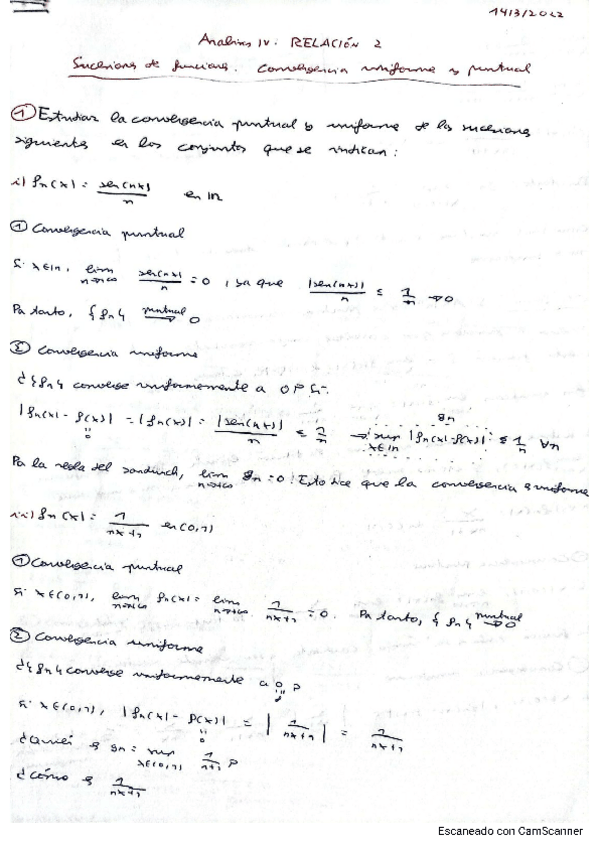 14/3/2022
Análisis IV: RELACIÓN 2
Sucesiones de funciones. Convergencia uniforme y puntual
① Estudiar la convergencia puntual y uniforme de las sucesiones
siguientes en los conjuntos que se indican:
i) fn(x) = sen(nx)/n en IR
① Convergencia puntual
Si x∈IR, lim n→∞ sen(nx)/n = 0, ya que |sen(nx)|/n ≤ 1/n → 0
Por tanto, {fn} puntual→ 0
② Convergencia uniforme
¿{fn} converge uniformemente a 0? Sí.
|fn(x) - f(x)| = |fn(x)| = |sen(nx)|/n ≤ 1/n → sup x∈IR |fn(x) - f(x)| ≤ 1/n ∀n
Por la regla del sandwich, lim n→∞ gn = 0. Esto dice que la convergencia es uniforme
ii) fn(x) = 1/(nx+1) en (0,1)
① Convergencia puntual
Si x∈(0,1), lim n→∞ fn(x) = lim n→∞ 1/(nx+1) = 0. Por tanto, {fn} puntual→ 0
② Convergencia uniforme
¿{fn} converge uniformemente a 0?
Si x∈(0,1), |fn(x) - f(x)| = |1/(nx+1)| = 1/(nx+1)
¿Quién es gn = sup x∈(0,1) 1/(nx+1)?
¿Cómo es 1/(nx+1)
Escaneado con CamScanner